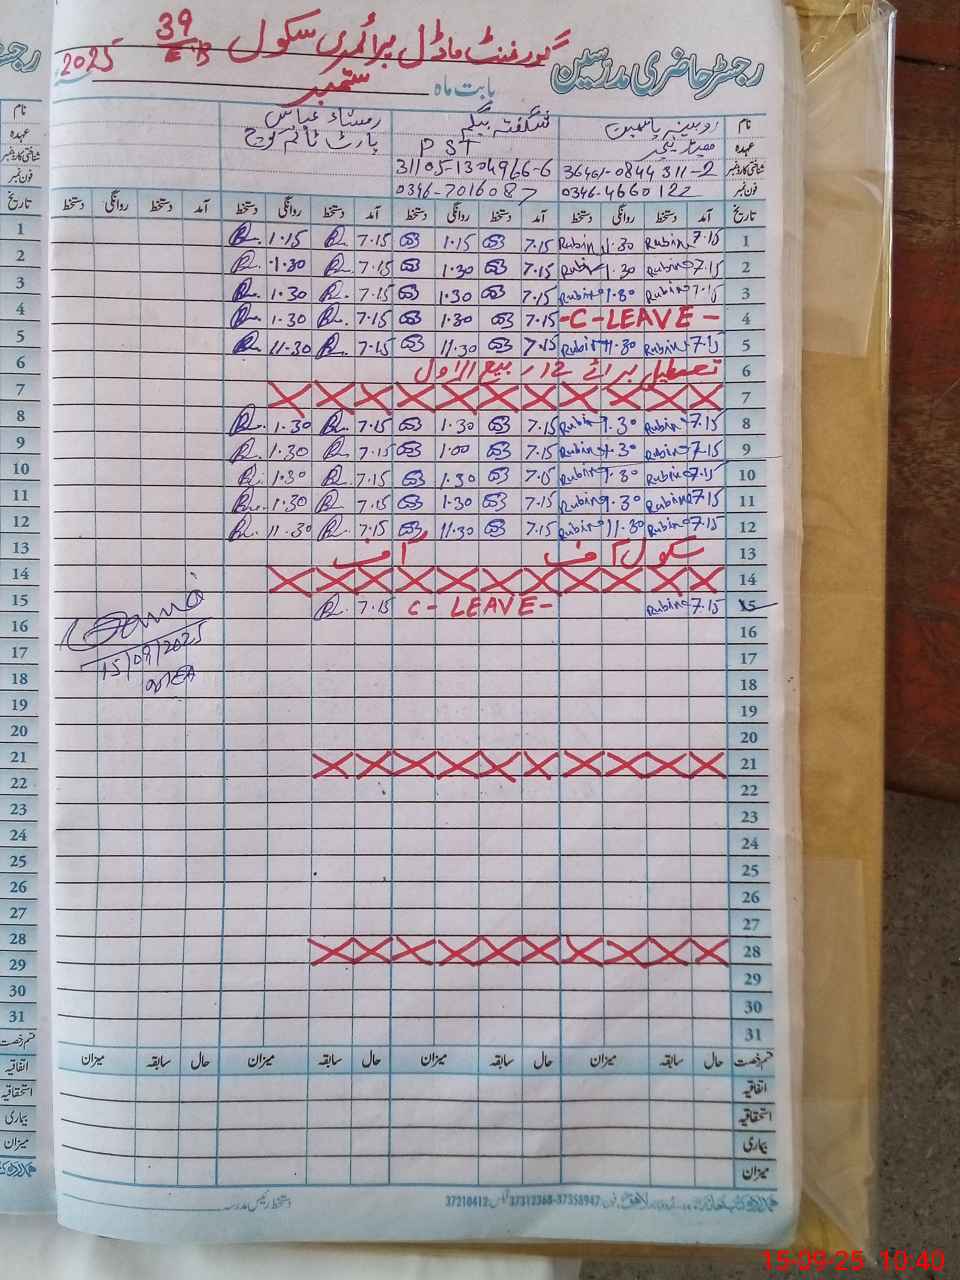 رجسٹر حاضری مدرسین گورنمنٹ ماڈل پرائمری سکول 39 E.B
بابت ماہ ستمبر 2025
نام روبینہ یاسمین شگفتہ بیگم
عہدہ PST پارٹ ٹائم کوچ
شناختی کارڈ نمبر 36401-0844311-2 31105-1304966-6
فون نمبر 0346-4660122 0346-7016087
تاریخ آمد دستخط روانگی دستخط آمد دستخط روانگی دستخط آمد دستخط روانگی دستخط آمد دستخط روانگی دستخط تاریخ
1 7.15 Rubina 1.30 Rubina 7.15 1.15 7.15 1.15 1
2 7.15 Rubina 1.30 Rubina 7.15 1.30 7.15 1.30 2
3 7.15 Rubina 1.30 Rubina 7.15 1.30 7.15 1.30 3
4 -C-LEAVE- 7.15 1.30 7.15 1.30 4
5 7.15 Rubina 11.30 Rubina 7.15 11.30 7.15 11.30 5
6 تعطیل برائے 12 ربیع الاول 6
7 7
8 7.15 Rubina 1.30 Rubina 7.15 1.30 7.15 1.30 8
9 7.15 Rubina 1.30 Rubina 7.15 1.00 7.15 1.30 9
10 7.15 Rubina 1.30 Rubina 7.15 1.30 7.15 1.30 10
11 7.15 Rubina 1.30 Rubina 7.15 1.30 7.15 1.30 11
12 7.15 Rubina 11.30 Rubina 7.15 11.30 7.15 11.30 12
13 سکول آف آف 13
14 14
15 7.15 Rubina C-LEAVE- 7.15 15
16 16
17 15/09/2025 17
18 18
19 19
20 20
21 21
22 22
23 23
24 24
25 25
26 26
27 27
28 28
29 29
30 30
31 31
قسم رخصت حال سابقہ میزان حال سابقہ میزان حال سابقہ میزان حال سابقہ میزان قسم رخصت
اتفاقیہ اتفاقیہ
استحقاقیہ استحقاقیہ
بیماری بیماری
میزان میزان
37358947-37312368 37210412 دستخط رئیس مدرسہ
15-09-25 10:40